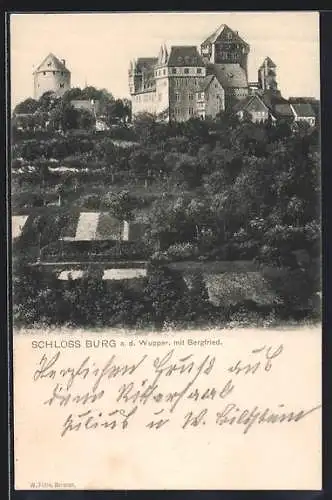 SCHLOSS BURG a. d. Wupper, mit Bergfried.
Herzlichen Gruß aus
dem Rittersaal
Julius u W.